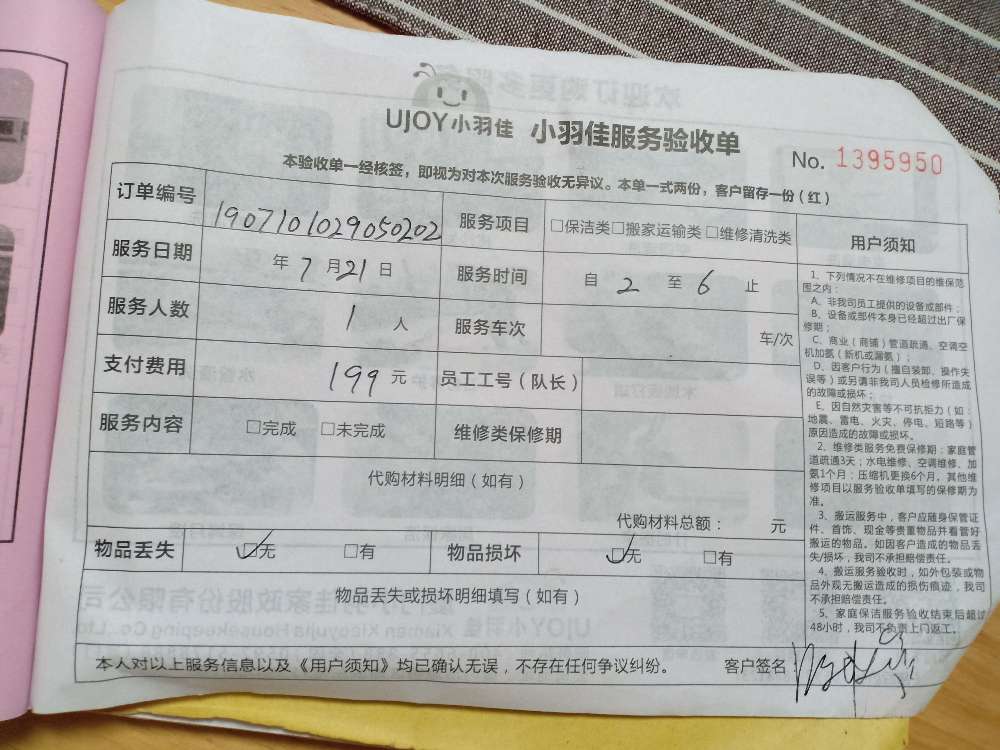 UJOY小羽佳 小羽佳服务验收单
No. 1395950
本验收单一经核签，即视为对本次服务验收无异议。本单一式两份，客户留存一份（红）
订单编号 190710102905020​2 服务项目 □保洁类□搬家运输类 □维修清洗类
服务日期 年 7 月 21 日 服务时间 自 2 至 6 止
服务人数 1 人 服务车次 车/次
支付费用 199 元 员工工号（队长）
服务内容 □完成 □未完成 维修类保修期
代购材料明细（如有）
代购材料总额： 元
物品丢失 ☑无 □有 物品损坏 ☑无 □有
物品丢失或损坏明细填写（如有）
本人对以上服务信息以及《用户须知》均已确认无误，不存在任何争议纠纷。 客户签名
用户须知
1、下列情况不在维修项目的维保范
围之内：
A、非我司员工提供的设备或部件；
B、设备或部件本身已经超过出厂保
修期；
C、商业（商铺）管道疏通、空调空
机加氨（新机或漏氨）；
D、因客户行为（擅自装卸、操作失
误等）或另请非我司人员检修所造成
的故障或损坏；
E、因自然灾害等不可抗拒力（如：
地震、雷电、火灾、停电、短路等）
原因造成的故障或损坏。
2、维修类服务免费保修期：家庭管
道疏通3天；水电维修、空调维修、加
氨1个月；压缩机更换6个月。其他维
修项目以服务验收单填写的保修期为
准。
3、搬运服务中，客户应随身保管证
件、首饰、现金等贵重物品并看管好
搬运的物品。如因客户造成的物品丢
失/损坏，我司不承担赔偿责任。
4、搬运服务验收时，如外包装或物
品外观无搬运造成的损伤痕迹，我司
不承担赔偿责任。
5、家庭保洁服务验收结束后超过
48小时，我司不负责上门返工。